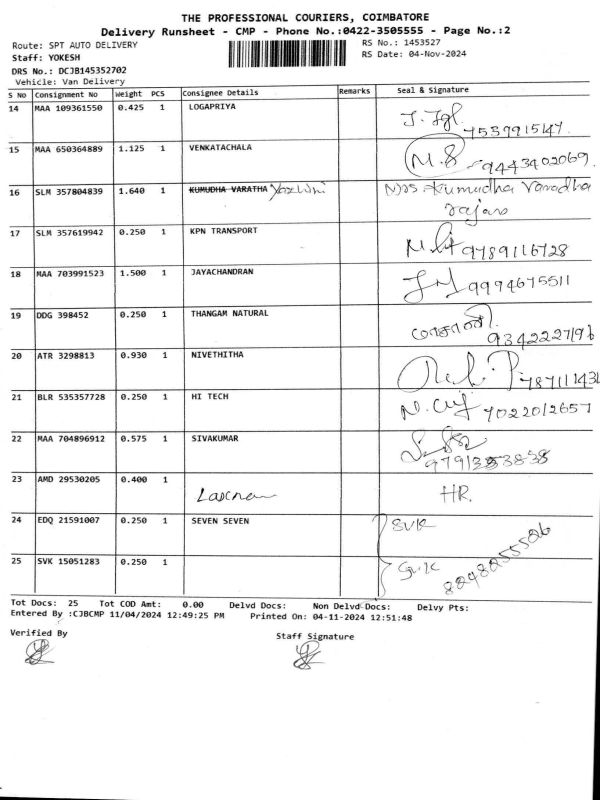 THE PROFESSIONAL COURIERS, COIMBATORE
Delivery Runsheet - CMP - Phone No.:0422-3505555 - Page No.:2
Route: SPT AUTO DELIVERY
RS No.: 1453527
Staff: YOKESH
RS Date: 04-Nov-2024
DRS No.: DCJB145352702
Vehicle: Van Delivery
S No Consignment No Weight PCS Consignee Details Remarks Seal & Signature
14 MAA 109361550 0.425 1 LOGAPRIYA
7539915147
15 MAA 650364889 1.125 1 VENKATACHALA
9443402069
16 SLM 357804839 1.640 1 KUMUDHA VARATHA
Mrs Kumudha Varadha
rajan
17 SLM 357619942 0.250 1 KPN TRANSPORT
9789116728
18 MAA 703991523 1.500 1 JAYACHANDRAN
9994675511
19 DDG 398452 0.250 1 THANGAM NATURAL
9342227196
20 ATR 3298813 0.930 1 NIVETHITHA
21 BLR 535357728 0.250 1 HI TECH
7022012657
22 MAA 704896912 0.575 1 SIVAKUMAR
23 AMD 29530205 0.400 1
HR.
24 EDQ 21591007 0.250 1 SEVEN SEVEN SVK
25 SVK 15051283 0.250 1 SVK
Tot Docs: 25 Tot COD Amt: 0.00 Delvd Docs: Non Delvd Docs: Delvy Pts:
Entered By :CJBCMP 11/04/2024 12:49:25 PM Printed On: 04-11-2024 12:51:48
Verified By
Staff Signature